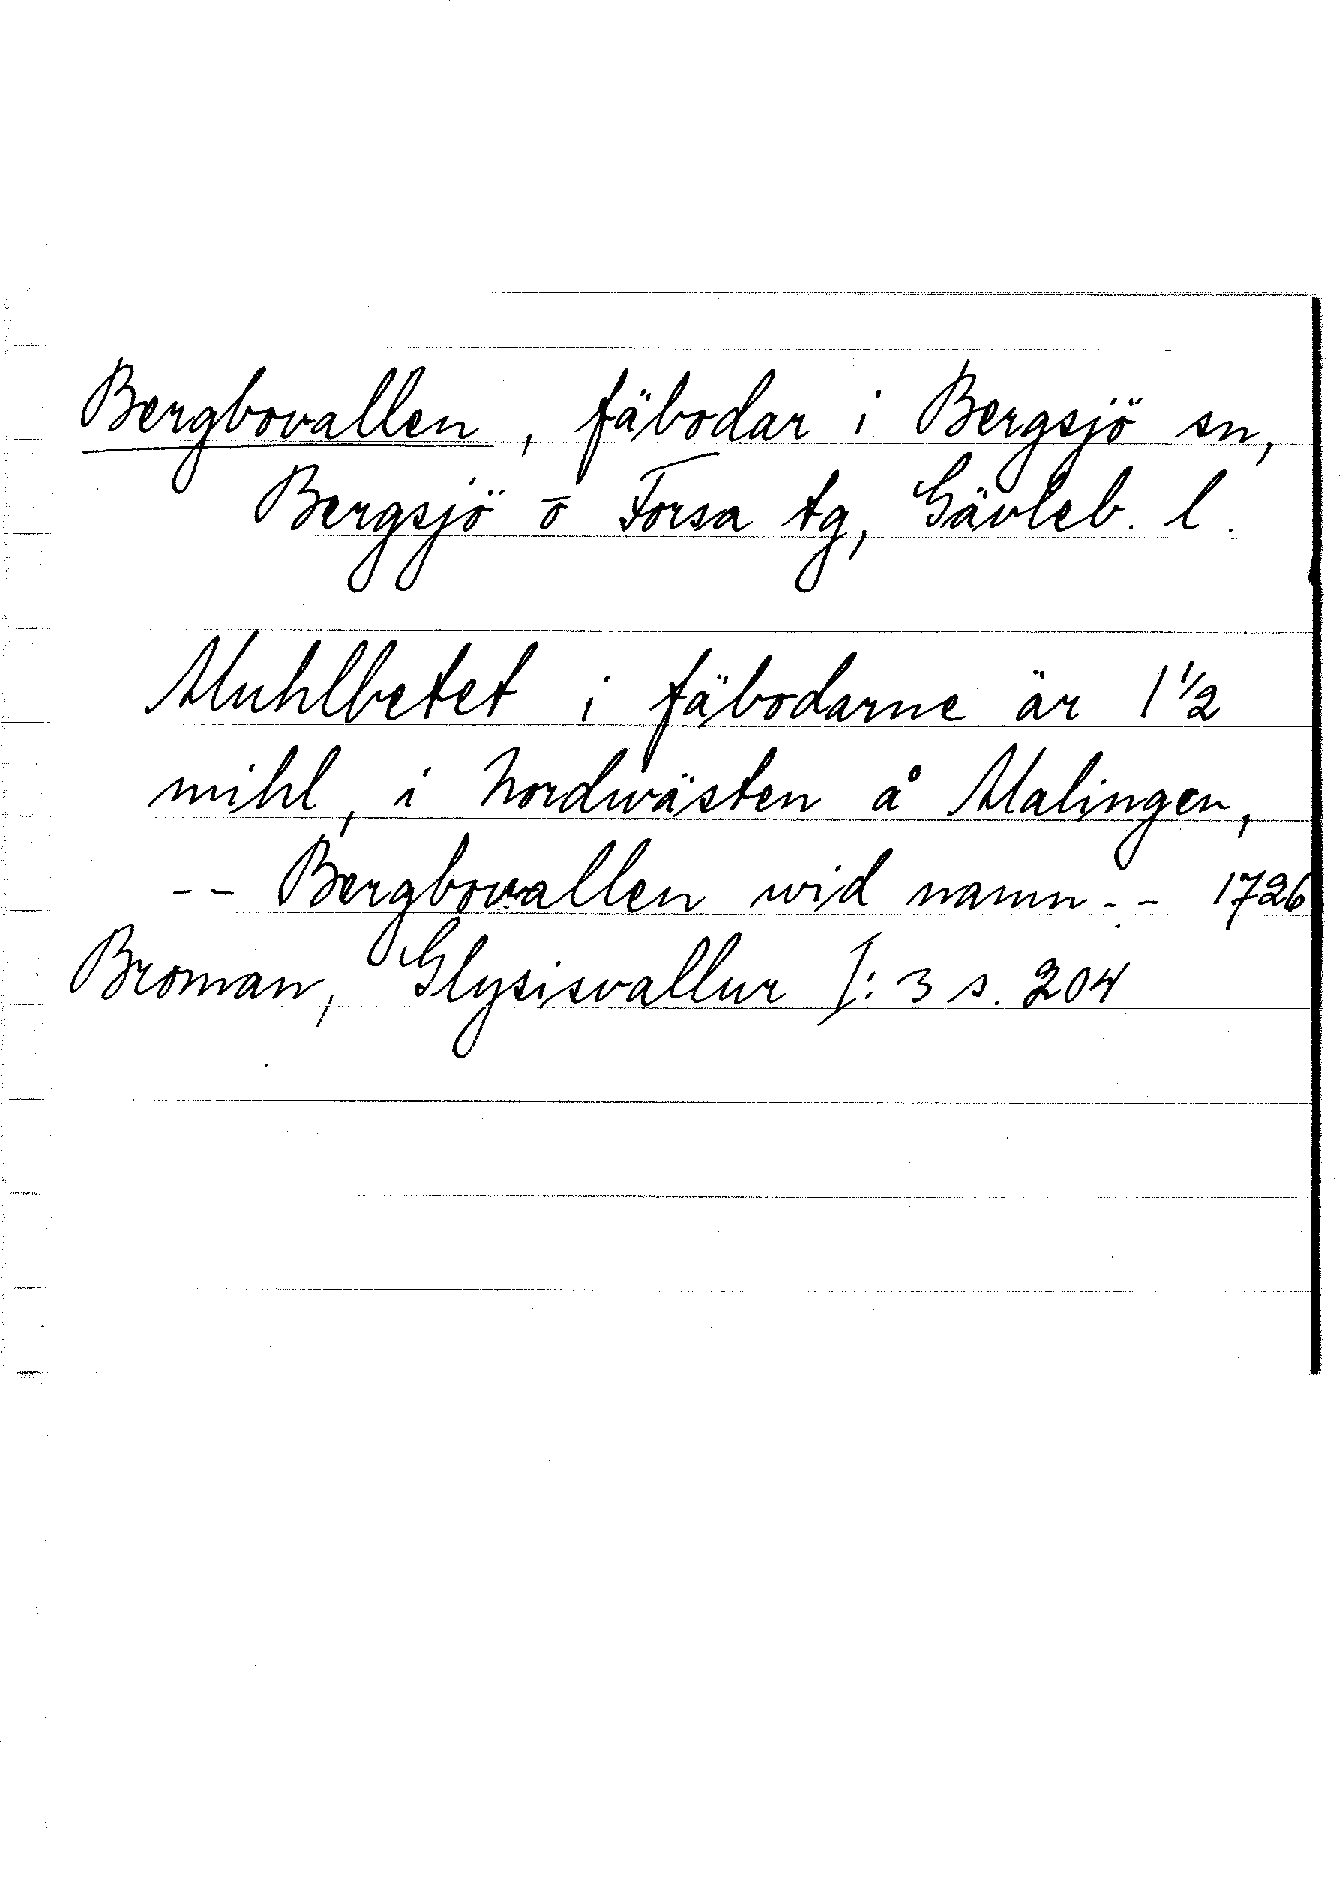 Bergbovallen, fäbodar i Bergsjö sn,
Bergsjö o Forsa tg, Gävleb. l.
Muhlbetet i fäbodarne är 1 1/2
mihl, i Nordwästen å Malingen,
-- Bergbowallen wid namn -- 1726
Broman, Glysisvallur I: 3 s. 204